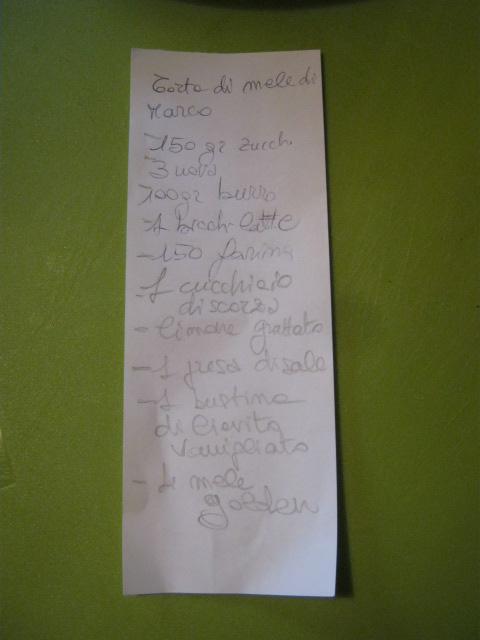 Torta di mele di
Marco
-150 gr zucch.
3 uova
100gr burro
-1 bicch. latte
-150 farina
-1 cucchiaio
di scorza
- limone grattato
-1 presa di sale
-1 bustina
di lievito
vanigliato
- 4 mele
golden